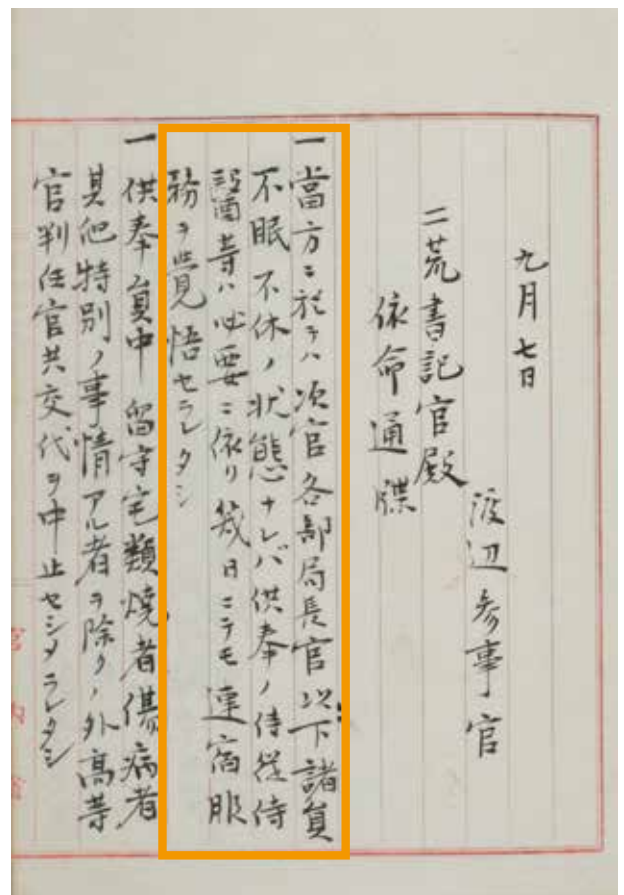 九月七日
渡辺参事官
二荒書記官殿
依命通牒
一當方ニ於テハ次官各部局長官以下諸員
不眠不休ノ状態ナレバ供奉ノ侍従侍
醫等ハ必要ニ依リ幾日ニテモ連宿服
務ヲ覺悟セラレタシ
一供奉員中留守宅類焼者傷病者
其他特別ノ事情アル者ヲ除クノ外高等
官判任官共交代ヲ中止セシメラレタシ
宮内省